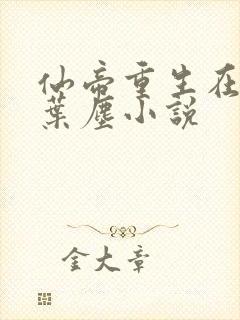 仙帝重生在
葉塵小説
金大章